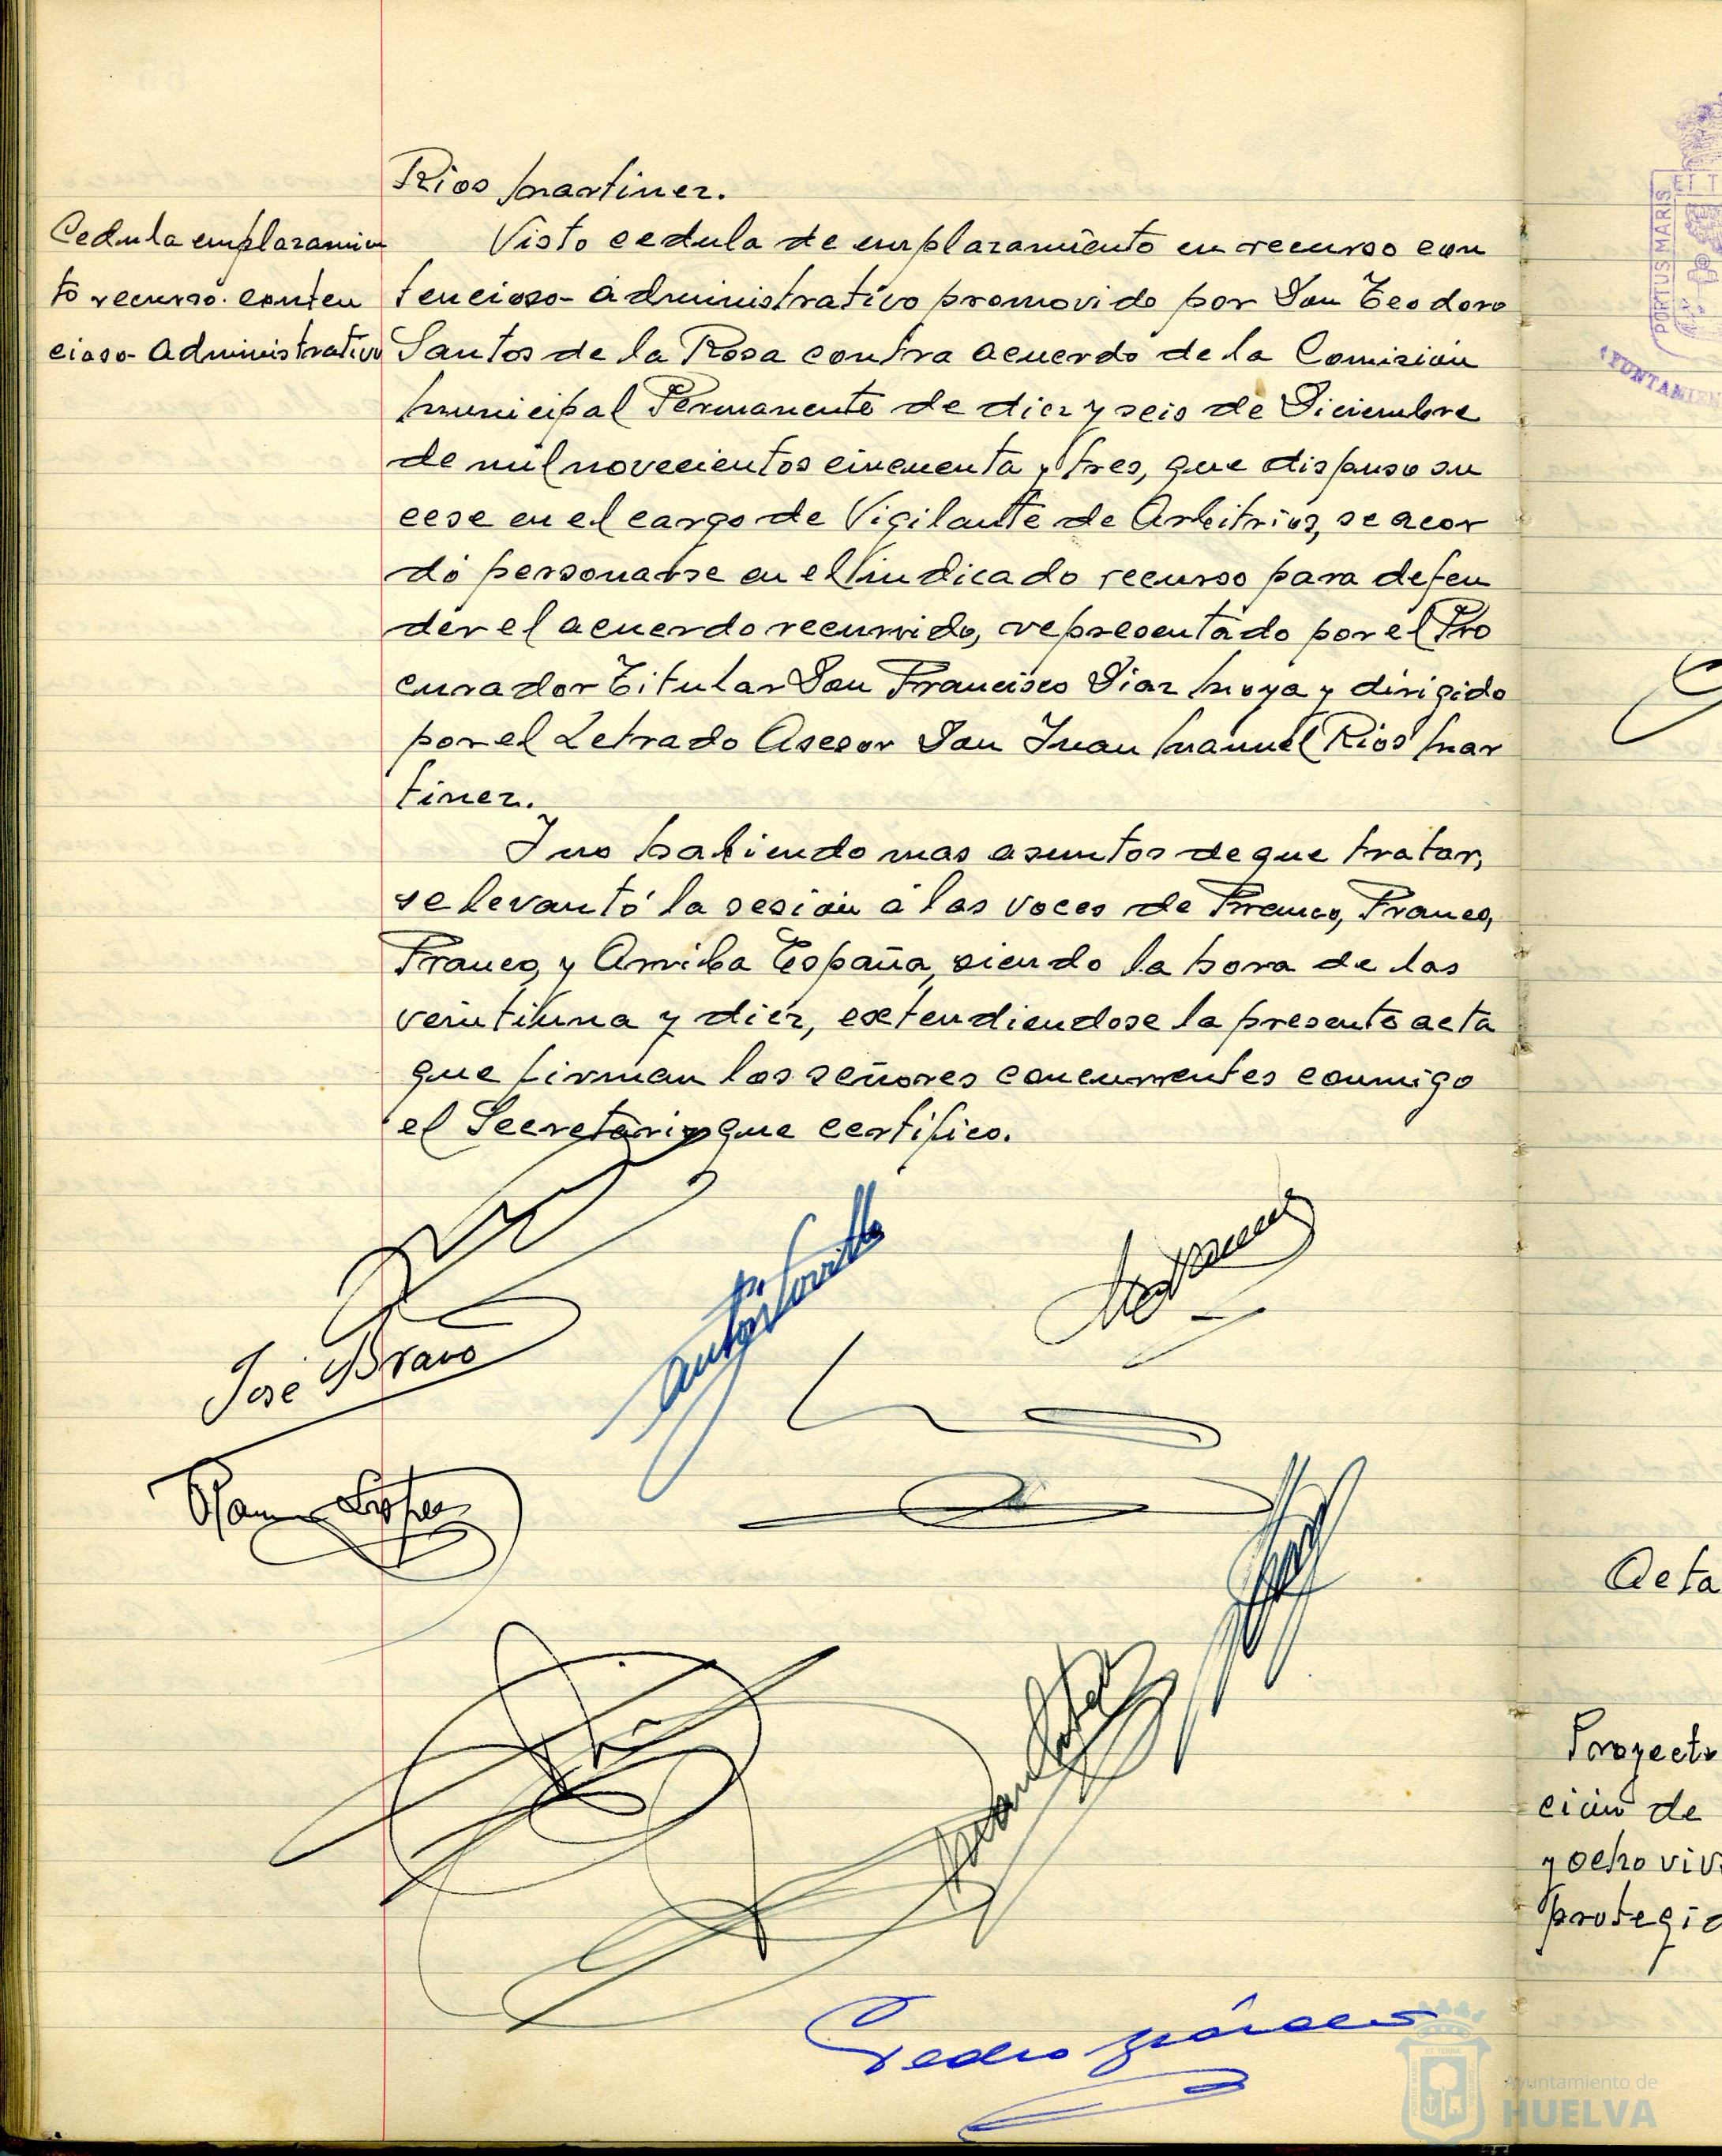 Rios Martinez.
Cedula emplazamien
to recurso conten
cioso-administrativo
Visto cedula de emplazamiento en recurso con
tencioso-administrativo promovido por Don Teodoro
Santos de la Rosa contra acuerdo de la Comisión
Municipal Permanente de diez y seis de Diciembre
de mil novecientos cincuenta y tres, que dispuso su
cese en el cargo de Vigilante de Arbitrios, se acor
dó personarse en el indicado recurso para defen
der el acuerdo recurrido, representado por el Pro
curador Titular Don Francisco Diaz Moya y dirigido
por el Letrado Asesor Don Juan Manuel Rios Mar
tinez.
Y no habiendo mas asuntos de que tratar,
se levantó la sesión a las voces de Franco, Franco,
Franco, y Arriba España, siendo la hora de las
veintiuna y diez, extendiendose la presente acta
que firman los señores concurrentes conmigo
el Secretario, que certifico.
José Bravo
Lopez
Pedro
PORTUS MARIS
ET T
AYUNTAMIEN
Acta
Proyecto
ción de
y ocho viv
protegid
Ayuntamiento de
HUELVA